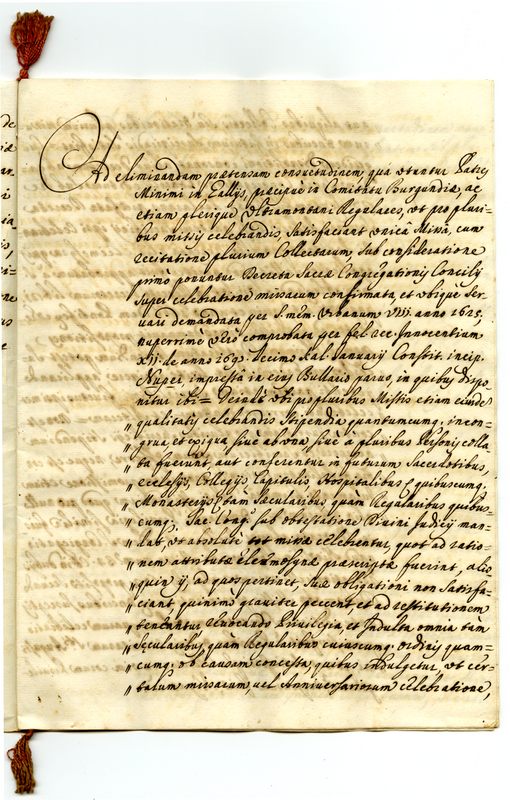 de
Ad eliminandam prætensam consuetudinem, qua utuntur Patres
Minimi in Gallys, præcipuè in Comitatu Burgundiæ, ac
etiam pleriquè Ultramontani Regulares, ut pro pluri=
bus missis celebrandis, satisfaciant unicâ Missâ, cum
recitatione plurium Collectarum, sub consideratione
primò ponuntur Decreta Sacræ Congregationis Concilij
super celebratione missarum confirmata, et ubiquè ser=
uari demandata per S. mem. Urbanum VIII. anno 1625,
nuperrimè verò comprobata per fel. rec. Innocentium
XII. de anno 1697. decimo Kal. Ianuarij Constit. incip.
Nuper, impressa in eius Bullario paruo, in quibus dispo=
nitur ibi = Deinde ubi pro pluribus Missis etiam eiusdē
" qualitatis celebrandis stipendia quantumcumq. incon=
" grua et exigua, siuè ab una, siuè à pluribus Personis colla=
" ta fuerunt, aut conferentur in futurum Sacerdotibus,
" ecclesijs, Collegijs, Capitulis, Hospitalibus, quibuscumq.
" Monasterijs, tàm sæcularibus quàm Regularibus quibus=
" cumq. Sac. Cong. sub obtestatione Diuini Iudicij man=
" dat, ut absolutè tot missæ celebrentur, quot ad ratio=
" nem attributæ elemosynæ præscriptæ fuerint, alio=
" quin ij, ad quos pertinet, suæ obligationi non satisfa=
" ciant quinimò grauiter peccent, et ad restitutionem
" teneantur Reuocando Priuilegia, et Indulta omnia tàm
" Sæcularibus, quàm Regularibus cuiuscumq. ordinis quam=
" cumq. ob causam concessa, quibus indulgetur, ut cer=
" tarum missarum, uel Anniuersariorum celebratione,